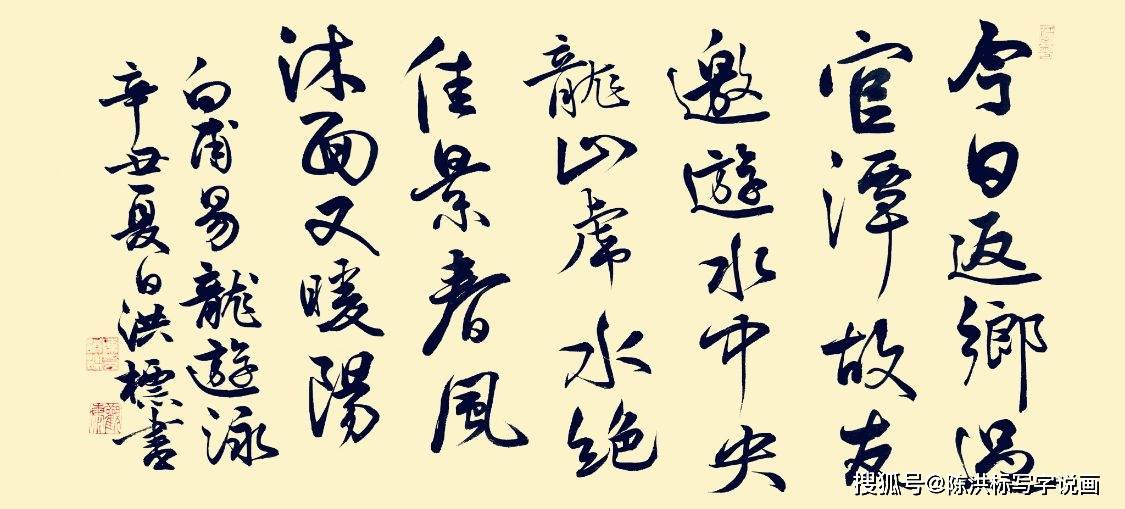 今日返鄉過
官潭故友
邀遊水中央
龍山虎水絕
佳景春風
沐面又暖陽
白甫易龍遊泳
辛丑夏日洪標書
搜狐号@陈洪标写字说画